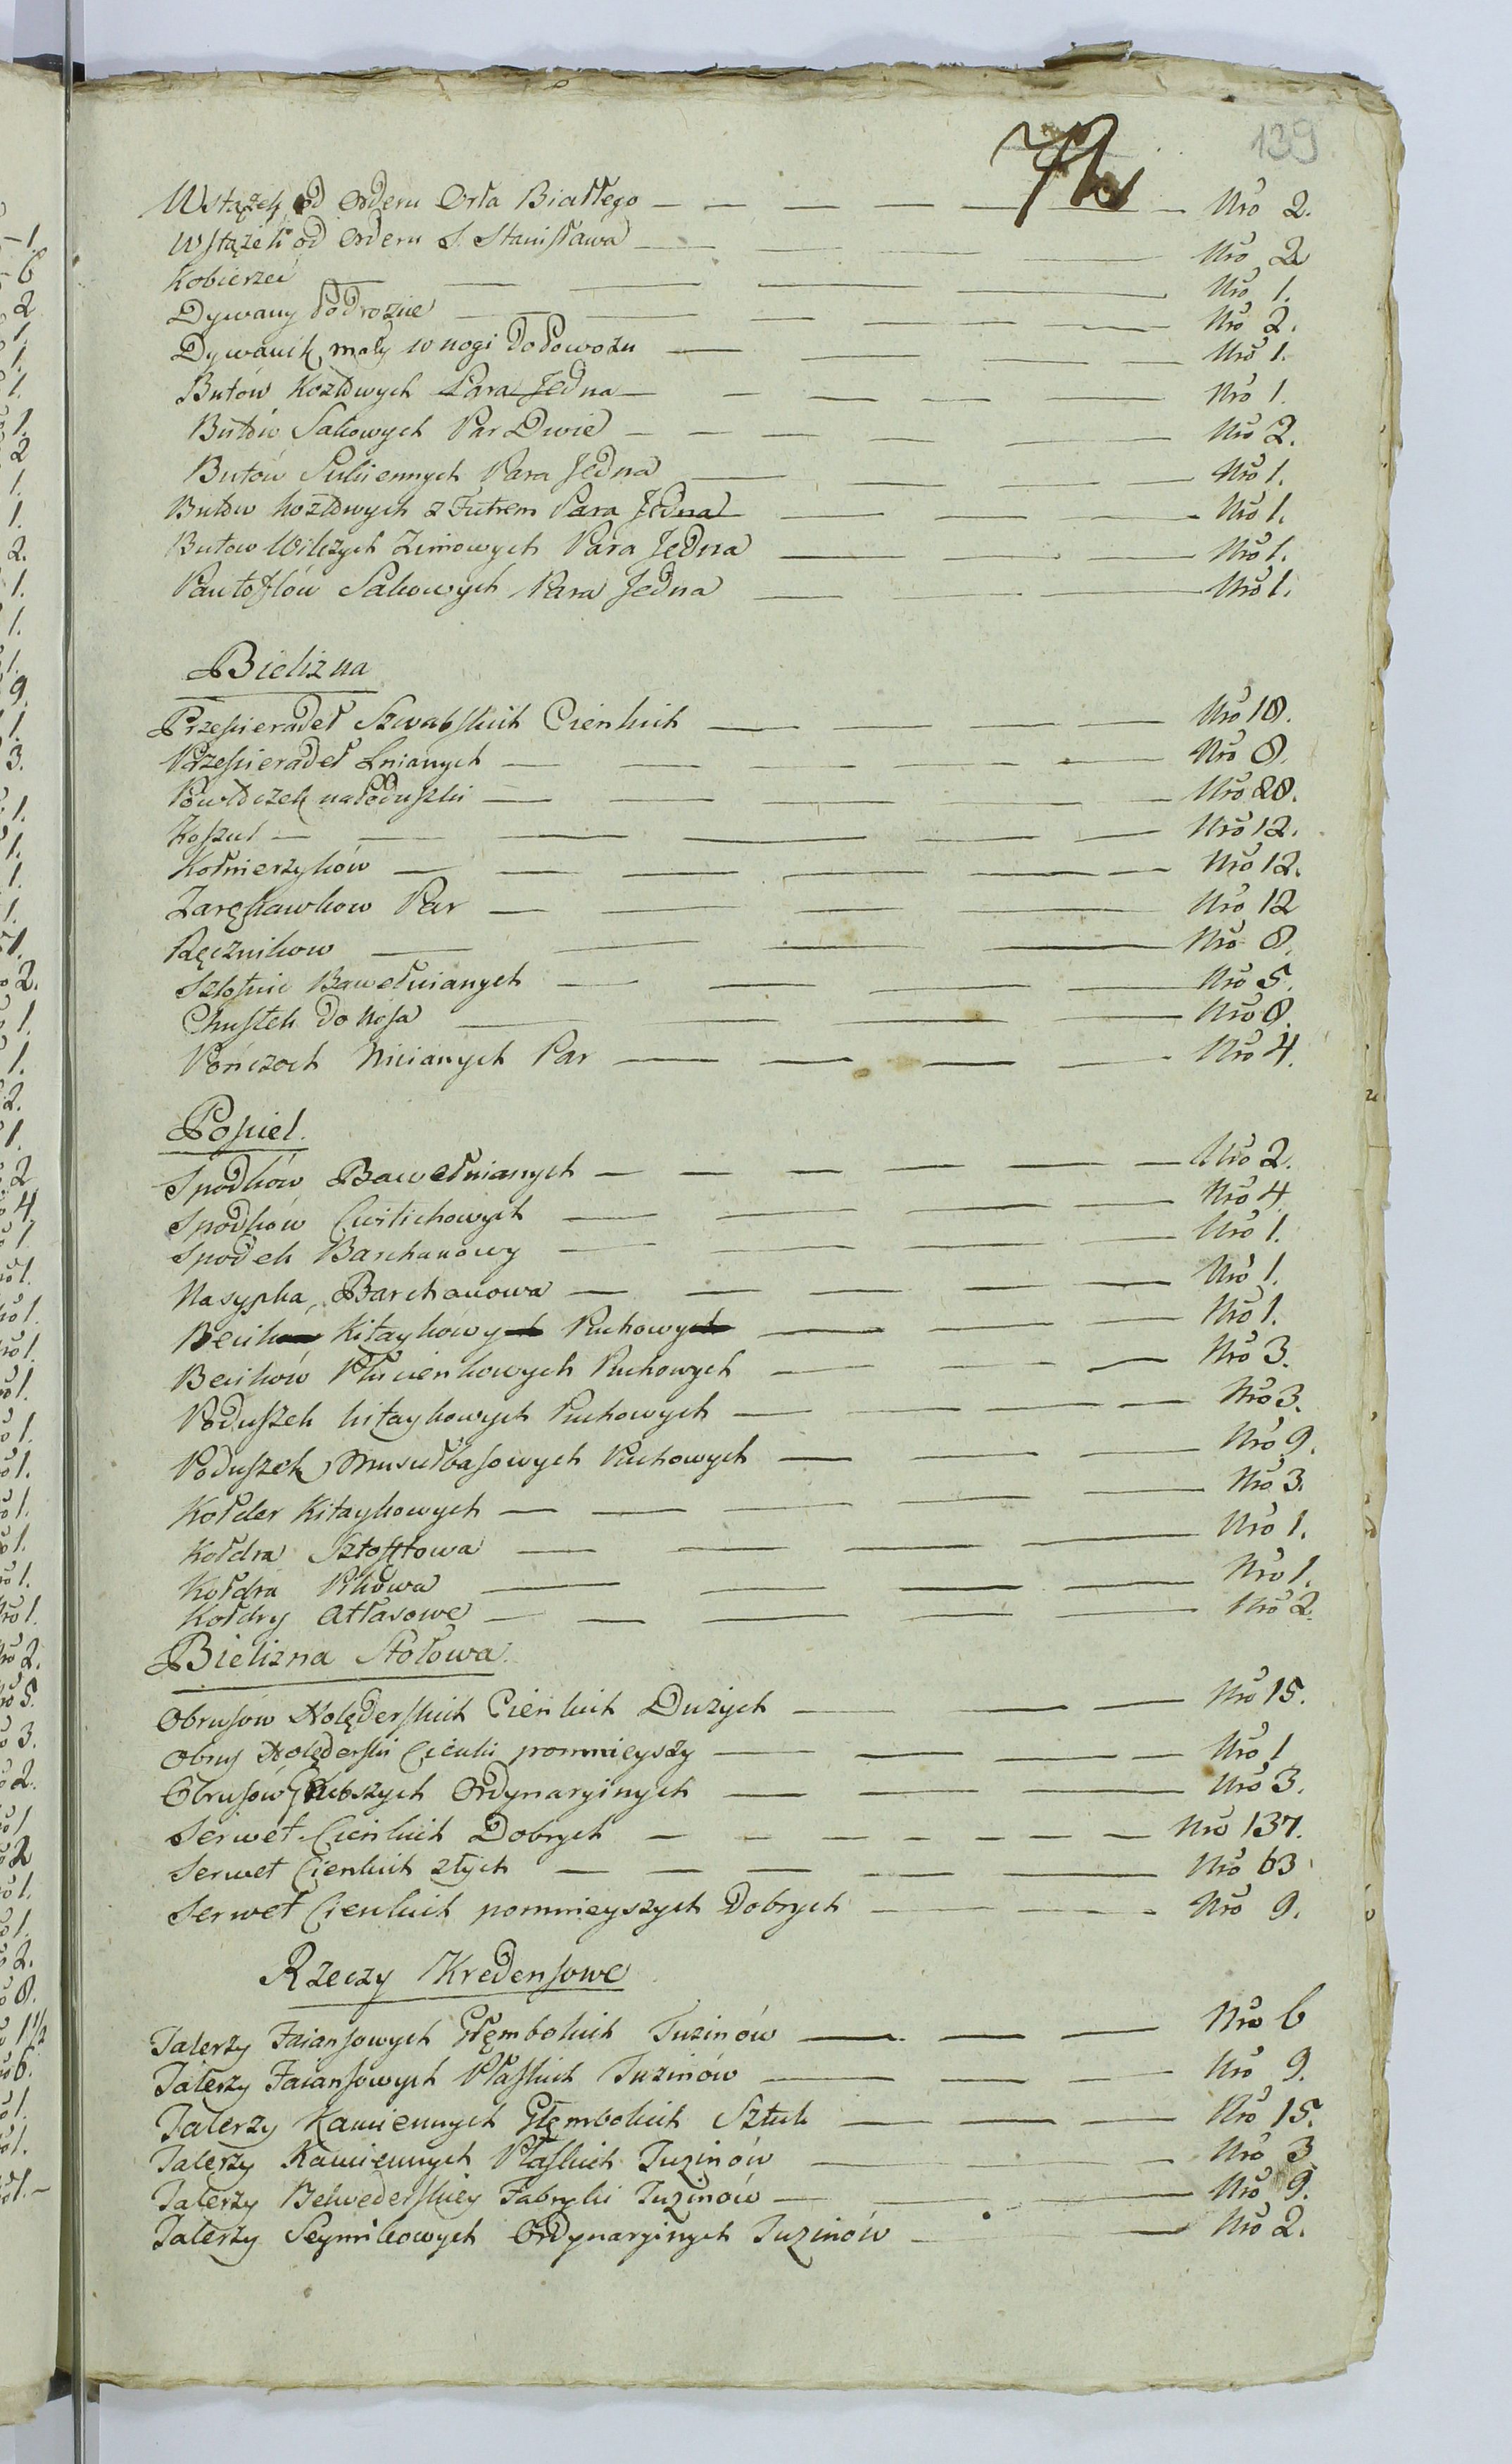 139
Wstążek od Orderu Orła Białłego — Nro 2.
Wstążek od Orderu S. Stanisława — Nro 2
Kobierzec — Nro 1.
Dywany Podrożne — Nro 2.
Dywanik mały w nogi do Powozu — Nro 1.
Butów Kozłowych Para Jedna — Nro 1.
Butów Sakowych Par Dwie — Nro 2.
Butów Sukiennych Para Jedna — Nro 1.
Butów kozłowych z Futrem Para Jedna — Nro 1.
Butow Wilczych Zimowych Para Jedna — Nro 1.
Pantoflów Sakowych Para Jedna — Nro 1.
Bielizna
Prześcieradeł Szwabskich Cienkich — Nro 18.
Prześcieradeł Lnianych — Nro 8.
Powłoczek na Poduszki — Nro 28.
Koszul — Nro 12.
Kołnierzyków — Nro 12.
Zarękawkow Par — Nro 12
Ręcznikow — Nro 8.
Szlofmic Bawełnianych — Nro 5.
Chustek do Nosa — Nro 8.
Pończoch Nicianych Par — Nro 4.
Pościel.
Spodków Bawełnianych — Nro 2.
Spodków Cwilichowych — Nro 4.
Spodek Barchanowy — Nro 1.
Nasypka Barchanowa — Nro 1.
Becik Kitaykowy Puchowy — Nro 1.
Becików Płócienkowych Puchowych — Nro 3.
Poduszek kitaykowych Puchowych — Nro 3.
Poduszek Musułbasowych Puchowych — Nro 9.
Kołder Kitaykowych — Nro 3.
Kołdra Sztofftowa — Nro 1.
Kołdra Pikowa — Nro 1.
Kołdry Atłasowe — Nro 2.
Bielizna Stołowa.
Obrusów Holęderskich Cienkich Dużych — Nro 15.
Obrus Holęderski Cienki pomnieyszy — Nro 1
Obrusów Grubszych Ordynaryinych — Nro 3.
Serwet Cienkich Dobrych — Nro 137.
Serwet Cienkich złych — Nro 63
Serwet Cienkich pomnieyszych Dobrych — Nro 9.
Rzeczy Kredensowe
Talerzy Faiansowych Głęmbokich Tuzinów — Nro 6
Talerzy Faiansowych Płaskich Tuzinów — Nro 9.
Talerzy Kamiennych Głęmbokich Sztuk — Nro 15.
Talerzy Kamiennych Płaskich Tuzinów — Nro 3
Talerzy Belwederskiey Fabryki Tuzinów — Nro 9.
Talerzy Seymikowych Ordynaryinych Tuzinów — Nro 2.